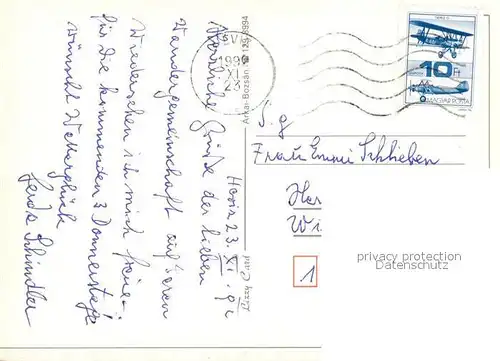 Héviz 23. XI. 92
Herzliche Grüße der lieben
Wandergemeinschaft auf deren
Wiedersehen ich mich freue.
für die kommenden 3 Donnerstage
wünscht Wetterglück
Gerda Schindler
S. g.
Frau Emmi Schlieben
Her
Wi
1
10 Ft
MAGYAR POSTA
XI
23
Artkai-Bozsán
privacy protection
Datenschutz